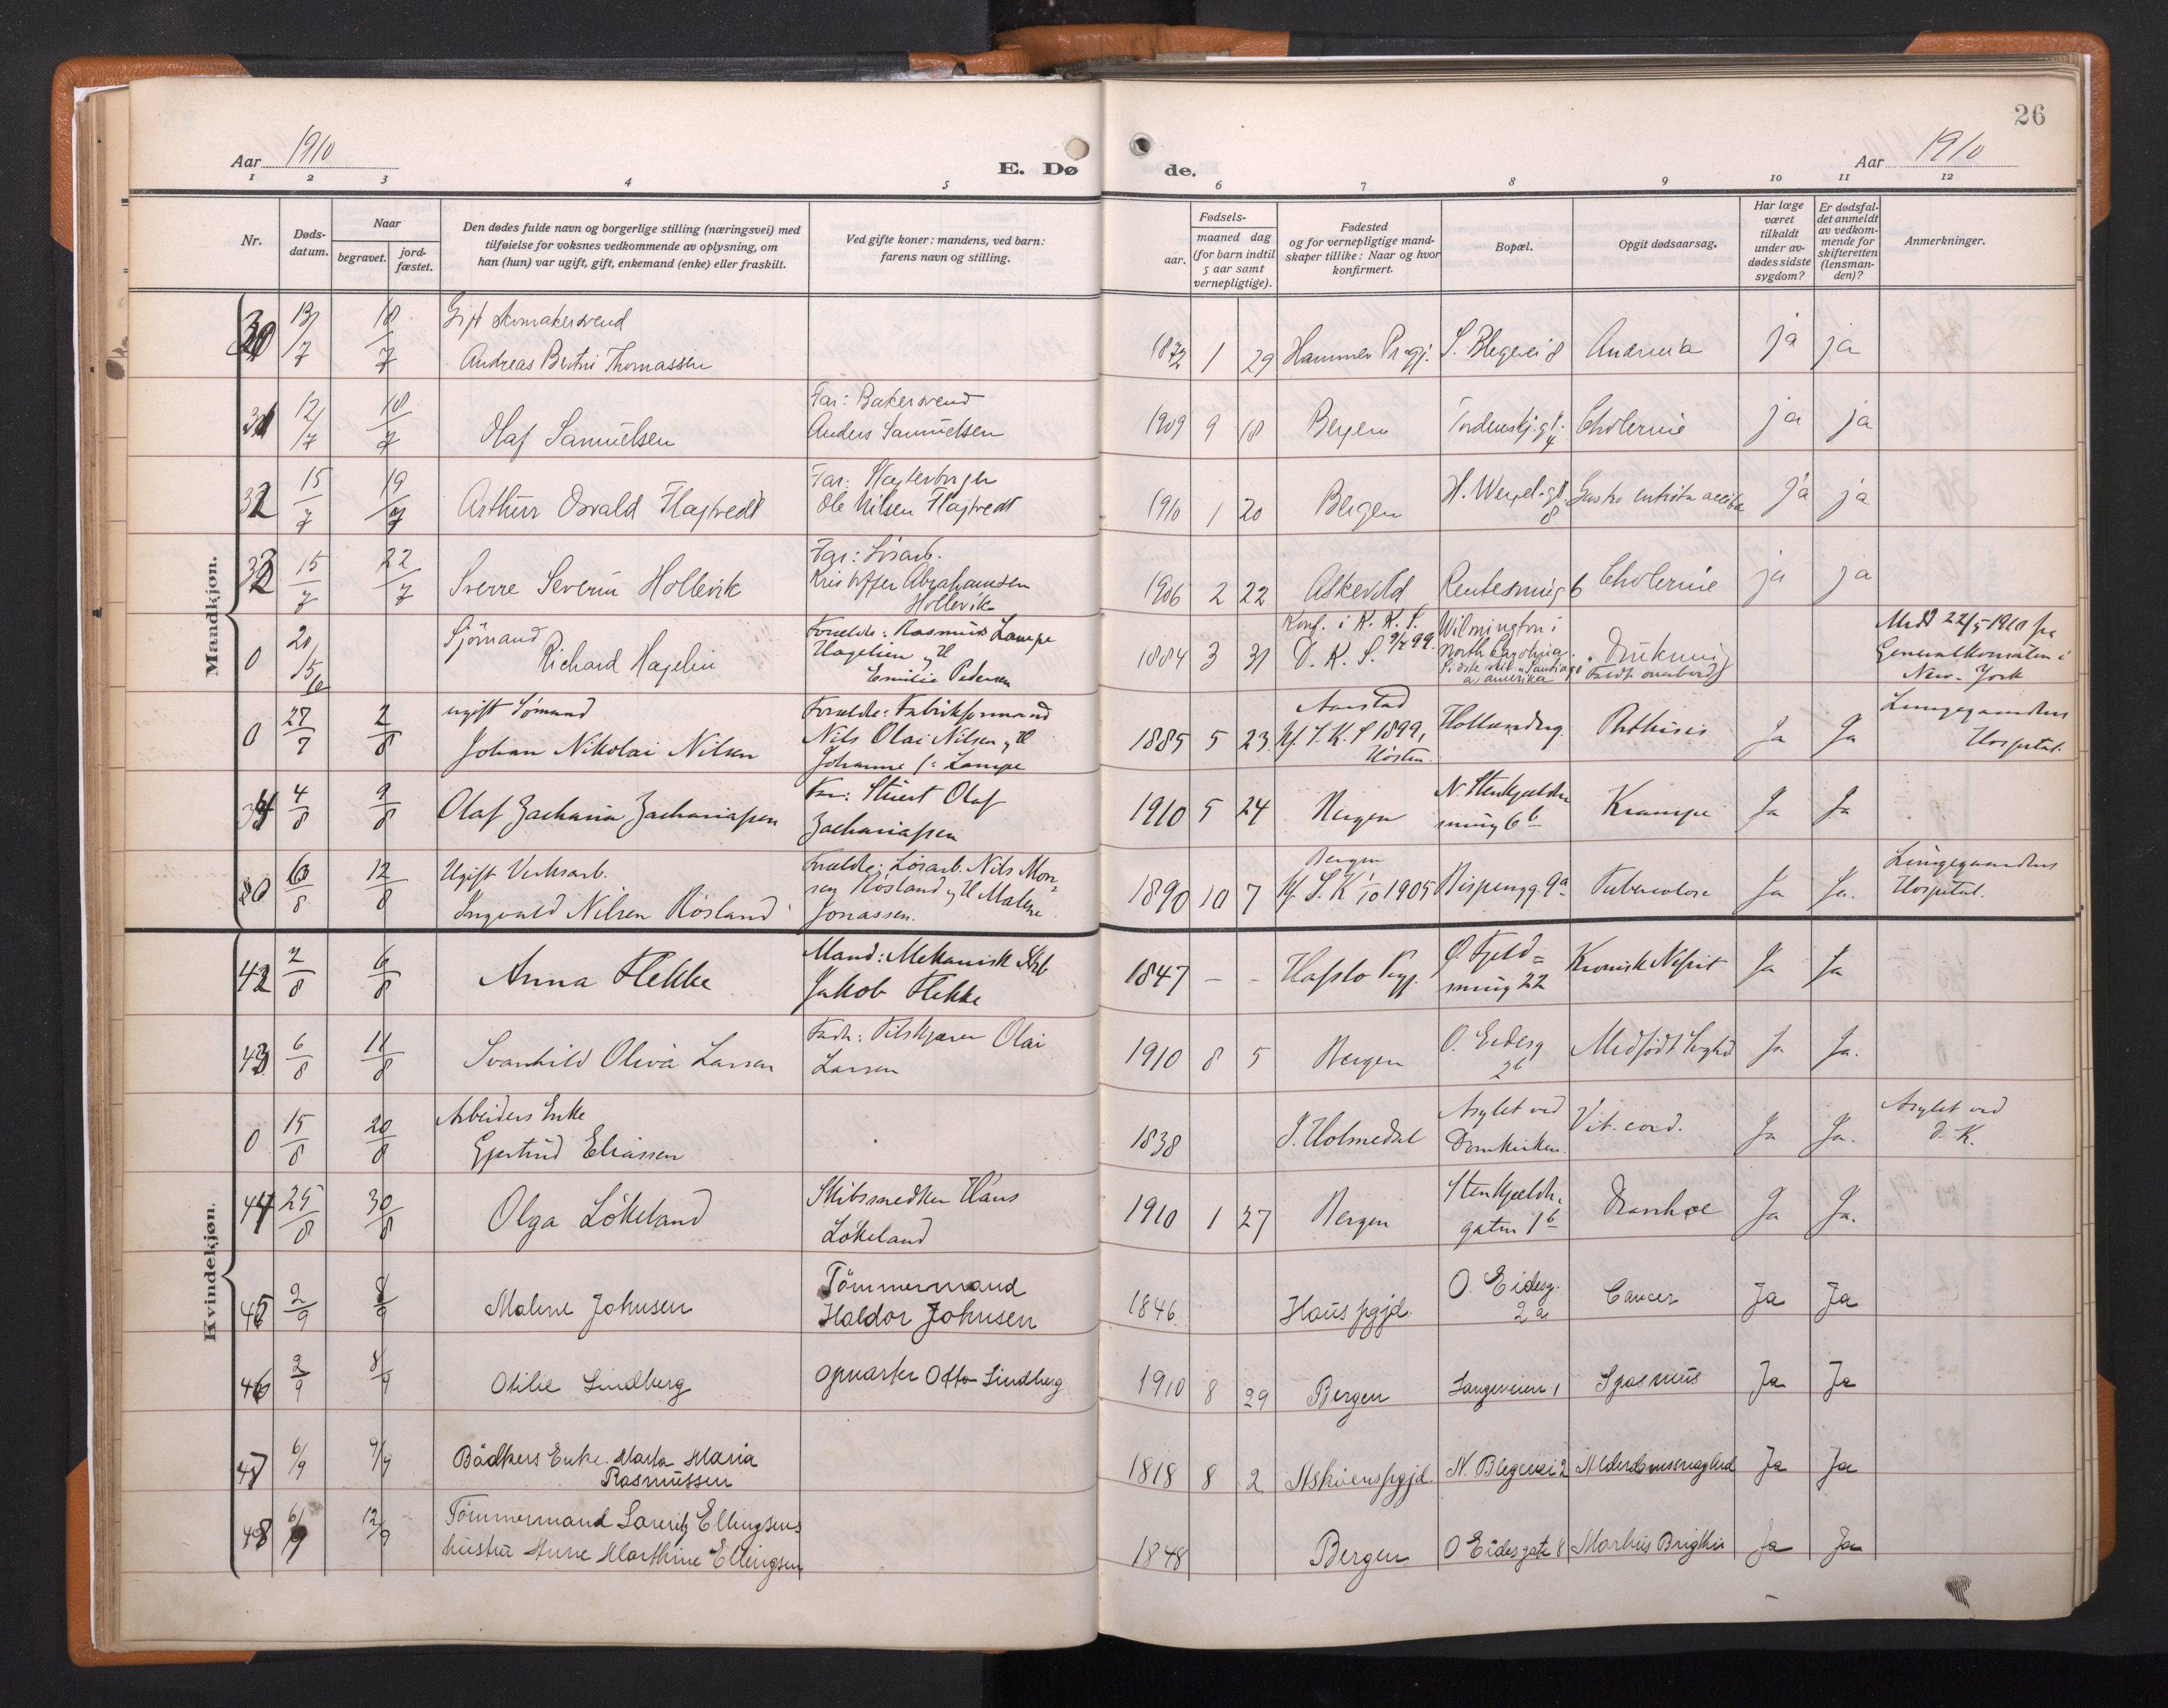 26
Aar 1910
E. Dø
de.
Aar 1910
1 2 3 4 5 6 7 8 9 10 11 12
Nr.
Døds-
datum.
Naar
begravet.
jord-
fæstet.
Den dødes fulde navn og borgerlige stilling (næringsvei) med
tilføielse for voksnes vedkommende av oplysning, om
han (hun) var ugift, gift, enkemand (enke) eller fraskilt.
Ved gifte koner: mandens, ved barn:
farens navn og stilling.
Fødsels-
aar.
maaned dag
(for barn indtil
5 aar samt
vernepligtige).
Fødested
og for vernepligtige mand-
skaper tillike: Naar og hvor
konfirmert.
Bopæl.
Opgit dødsaarsag.
Har læge
været
tilkaldt
under av-
dødes sidste
sygdom?
Er dødsfal-
det anmeldt
av vedkom-
mende for
skifteretten
(lensman-
den)?
Anmerkninger.
Mandkjøn.
30 13/7 18/7 Gift skomakersvend
Andreas Bertin Thomassen
1872 1 29 Hammer Prgj. S. Blegevei 8 ja ja
31 12/7 18/7 Olaf Samuelsen
Far: Bakersvend
Anders Samuelsen
1909 9 18 Bergen Tordenskj.gt. 4 Cholerine ja ja
32 15/7 19/7 Arthur Osvald Flagtvedt
Far:
Ole Nilsen Flagtvedt
1910 1 20 Bergen H. Wergel.gt. 8 ja ja
33 15/7 22/7 Sverre Severin Hollevik
Far: Løsarb.
Kristoffer Abrahamsen
Hollevik
1906 2 22 Askevold Rentesmug 6 Cholerine ja ja
0 Sjömand
Richard Hagelin
Forælde: Rasmus Lampe
Hagelien og H
Emilie Pedersen
1884 3 31 Konf. i K. K. S.
D. K. S. 99.
Wilmington i
North Carolina.
Amerika
Drukning
Faldt overbord
Medd 22/5 1910 fra
Generalkonsulen i
New-York
0 27/7 2/8 ugift Sömand
Johan Nikolai Nilsen
Forælde: Fabrikformand
Nils Olai Nilsen og H
Johanne f: Lampe
1885 5 23 Aarstad
Kf. J. K. S 1899,
Høsten.
Hollandrg. Phthisis Ja Ja
Lungegaardens
Hospital.
34 4/8 9/8 Olaf Zacharia Zachariassen
Far: Stuert Olaf
Zachariassen
1910 5 24 Bergen N. Stenkjelder
smug 6 b Krampe Ja Ja
6/8 12/8 Ugift Verksarb.
Ingvald Nilsen Røsland
Forælde: Løsarb. Nils Mon=
sen Røsland og H Malene
Jonassen.
1890 10 7 Bergen
Kf. S. K 1/10 1905 Nispengg. 9a Tuberculose Ja Ja.
Lungegaardens
Hospital.
Kvindekjøn.
42 2/8 6/8 Anna Flekke
Mand: Mekanisk Arb
Jakob Flekke
1847 - - Hafslo Pgj. Ø. Fjeld=
smug 22 Kronisk Nefrit Ja Ja
43 6/8 11/8 Svanhild Oliva Larsen
Fadr: Pilskjærer Olai
Larsen
1910 8 5 Bergen O. Eidesg
2b Medfødt Svaghed Ja Ja.
0 15/8 20/8 Arbeiders Enke
Gjertrud Eliassen
1838 I. Holmedal Asylet ved
Domkirken. Vit. cord. Ja Ja.
Asylet ved
D. K.
44 25/8 30/8 Olga Lökeland
Skibssmed Hans
Lökeland
1910 1 27 Bergen Stenkjelder.
gaten 1b Ja Ja.
45 2/9 8/9 Malene Johnsen
Tömmermand
Haldor Johnsen
1846 Haus pgjd. O. Eidesg.
2a Cancer Ja Ja
46 2/9 8/9 Otilie Lindberg
Opvarter Otto Lindberg
1910 8 29 Bergen Langeveien 1 Spasmus Ja Ja
47 6/9 9/9 Bödkers Enke Marta Maria
Rasmussen
1818 8 2 Askøens pgjd. N. Blegevei 2 Alderdomssvaghed Ja Ja
48 6/9 12/9 Tömmermand Laurits Ellingsens
hustru Anne Marthine Ellingsen
1848 Bergen O Eidesgate 8 Morbus Brightii Ja Ja